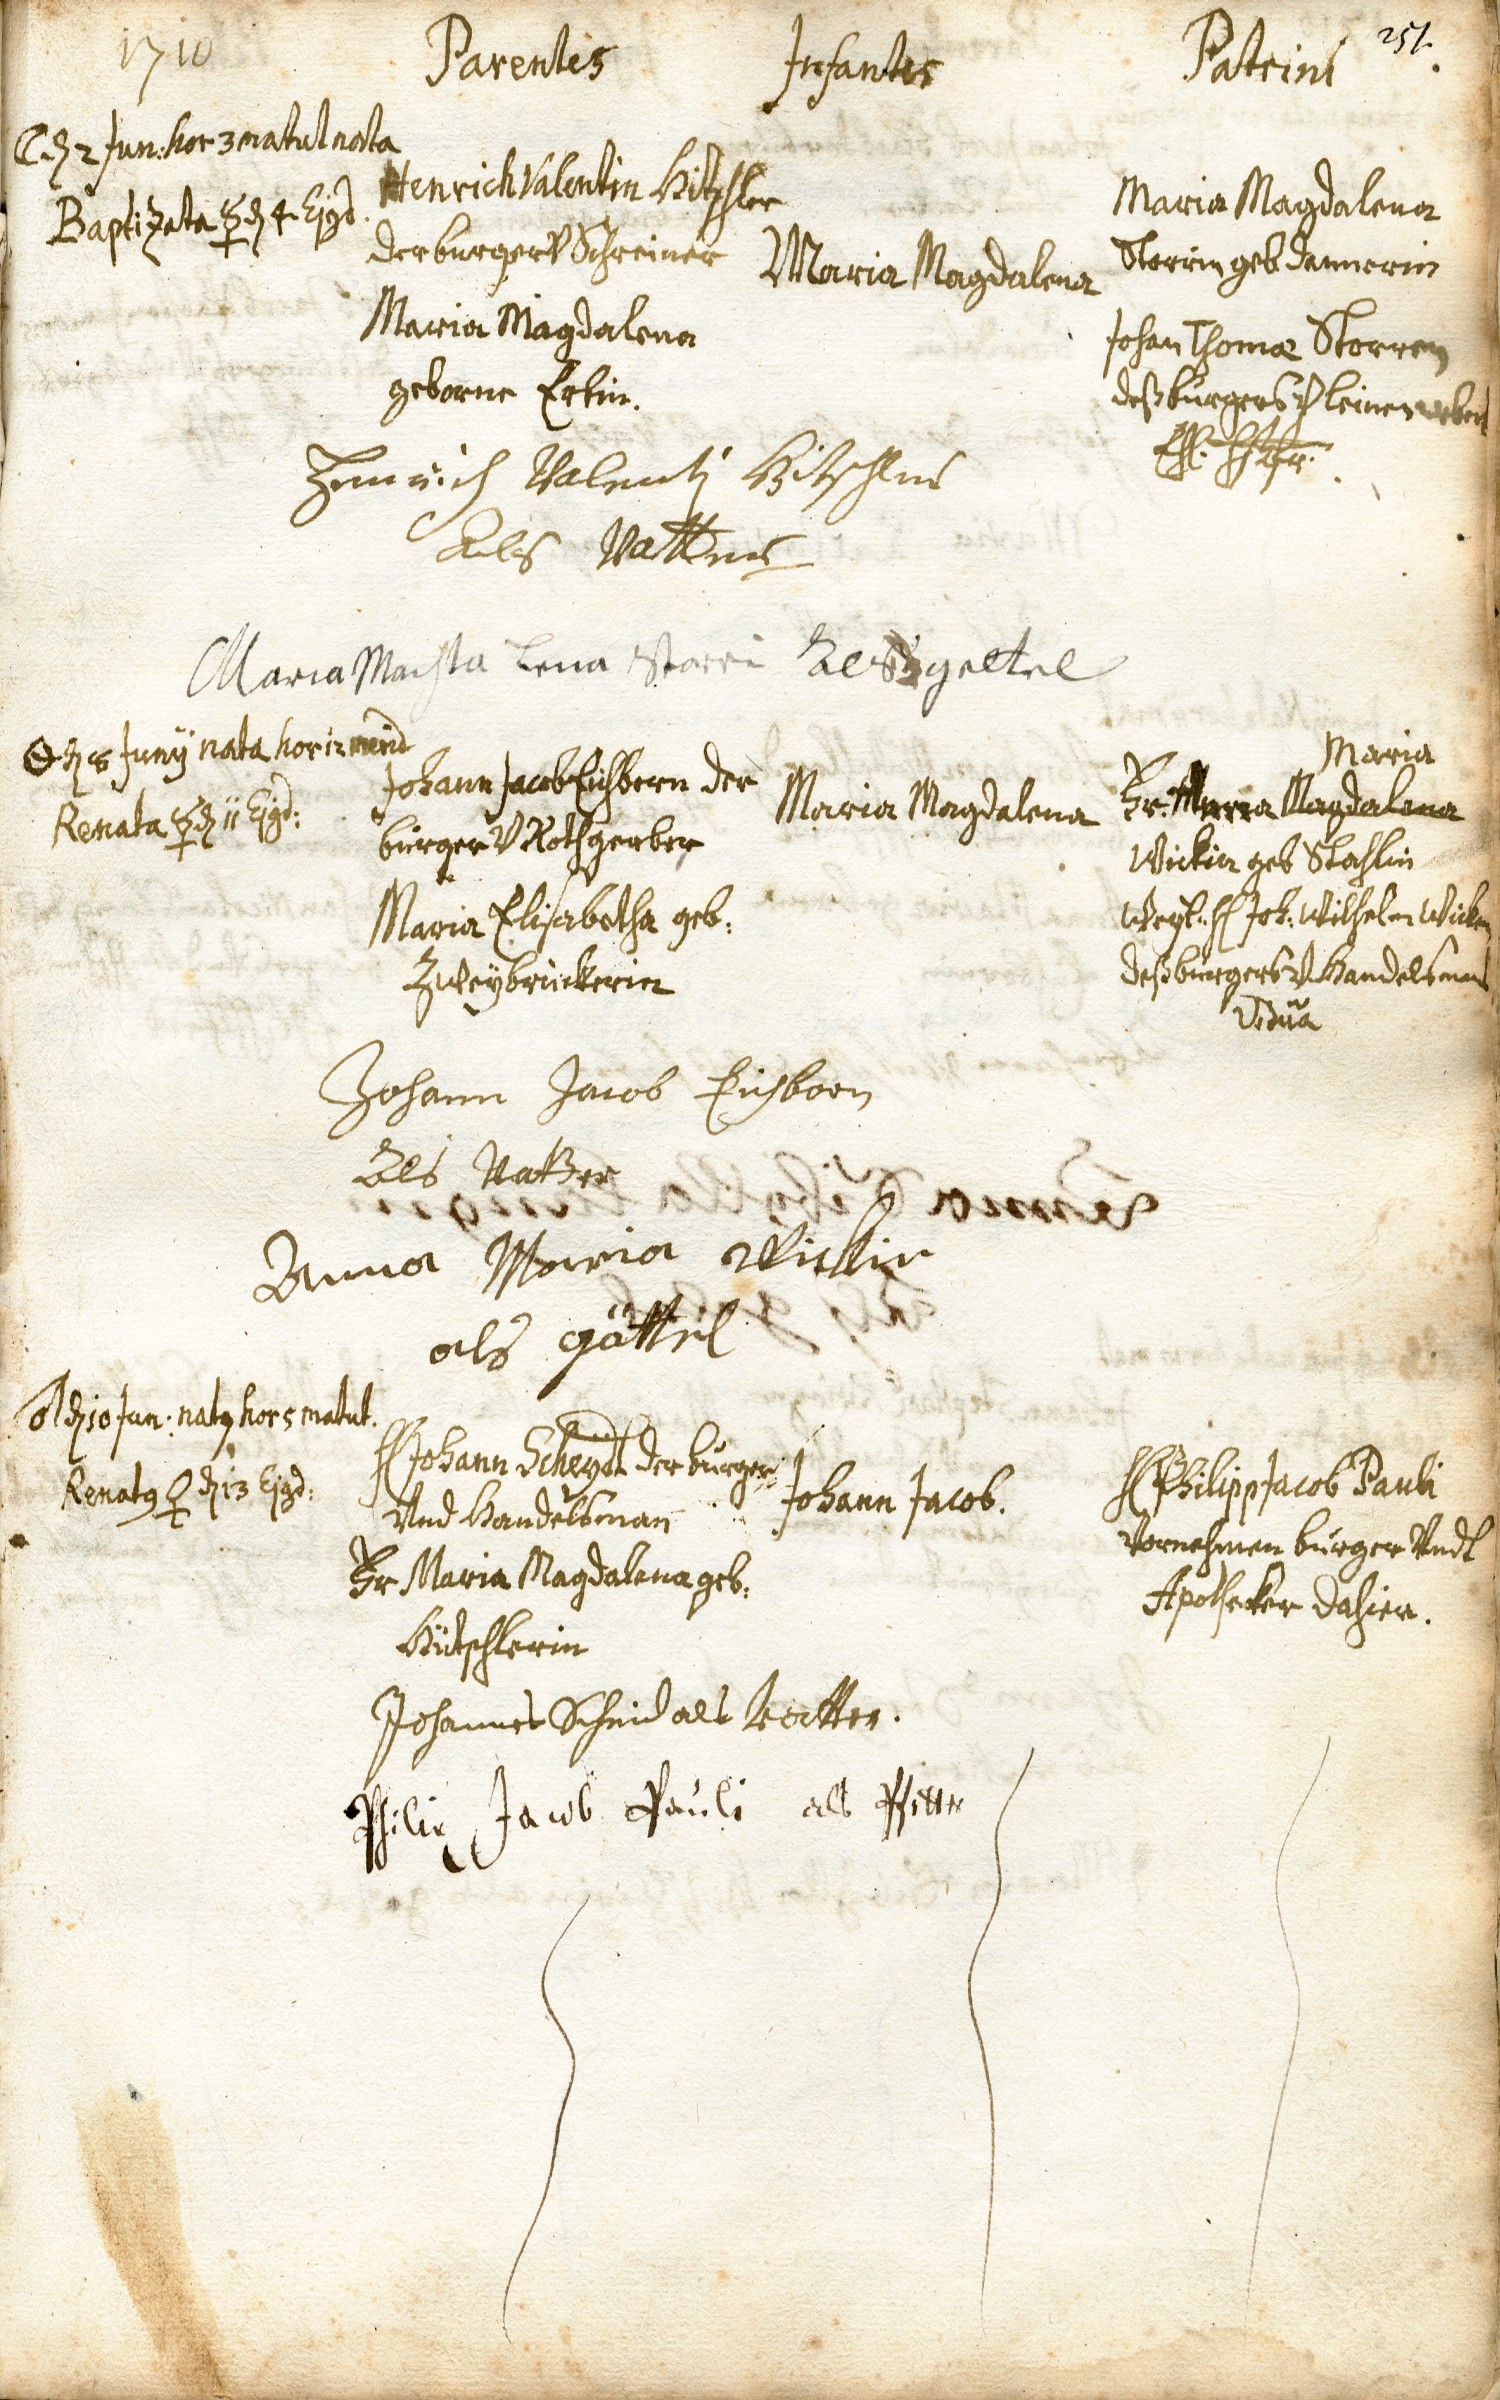 1710 Parentes Infantes Patrini 251.
☾ d 2 Jun: hor 3 matut nata
Baptizata ☿ d 4 Ejgd.
Henrich Valentin Hitschler
der burger V Schreiner
Maria Magdalena
geborne Erbin.
Maria Magdalena
Maria Magdalena
Storrin geb dannerin
Johan Thomæ Storren
deß burgers V leinenweber
Henrich Valentj Hitschler
Als Vatter
Maria Machta Lena Storri Als gettel
d 8 Junÿ nata hor 12 merid
Renata ☿ d 11 Ejgd:
Johann Jacob Eichborn der
burger V Rothgerber
Maria Elisabetha geb:
Zweÿbrückerin
Maria Magdalena
Maria
Fr. Magdalena
Wickin geb Stahlin
Weyl. H Joh: Wilhelm Wicken
deß burgers V Handelsmans
Vidua
Johann Jacob Eichborn
Als Vatter
Anna Maria Wickin
als göttel
♂ d 10 Jun: natg hor 5 matut.
Renatg ♀ d 13 Ejgd:
H Johann Scheydt der burger
Und Handelsman
Fr Maria Magdalena geb:
Hütschlerin
Johann Jacob.
H Philipp Jacob Pauli
Vornehmen burger Undt
Apothecker dahier.
Johannes Scheid als Vatter.
Philip Jacob Pauli als Pfetter